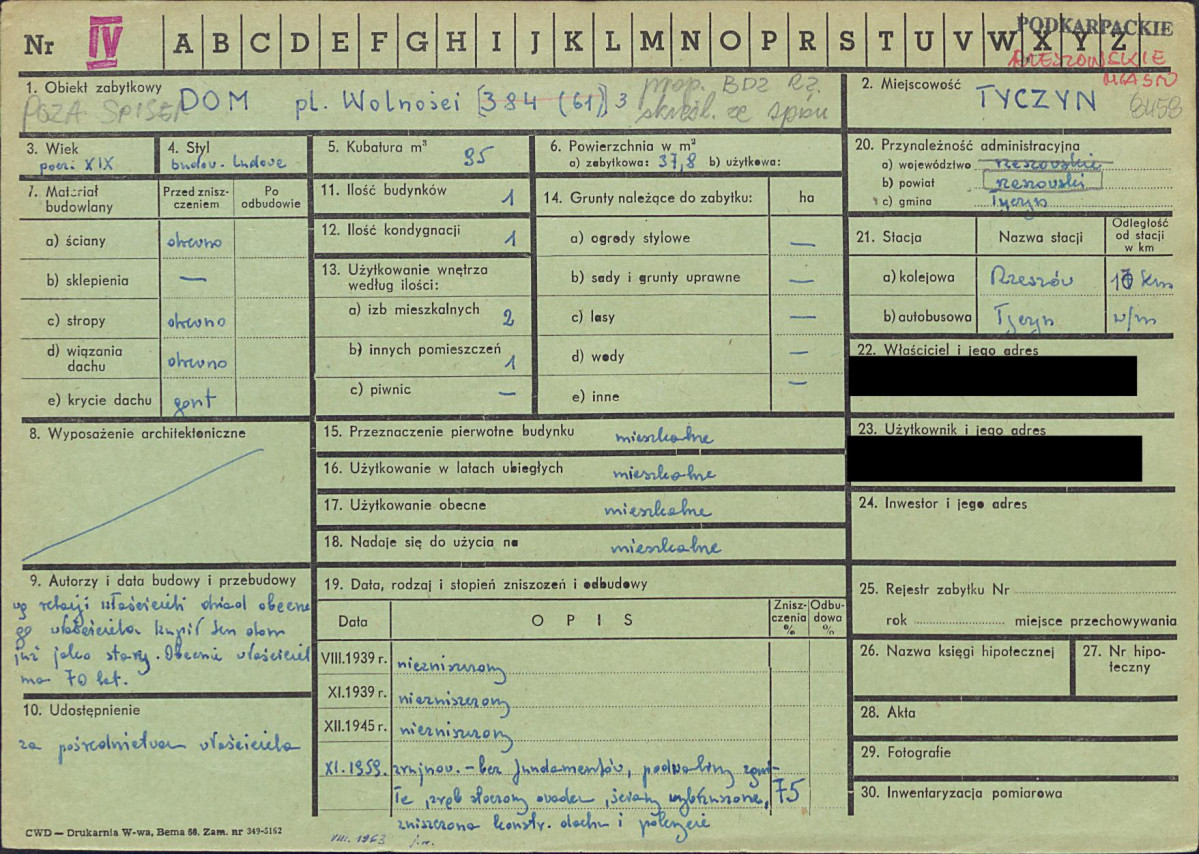 Nr IV A B C D E F G H I J K L M N O P R S T U V W X Y Z
PODKARPACKIE
RZESZOWSKIE
MIASTO
1. Obiekt zabytkowy
POZA SPISEM DOM pl. Wolności [384 (61)] 3
prop. BDZ Rz.
skreśl. ze spisu
2. Miejscowość
TYCZYN
8458
3. Wiek
pocz. XIX
4. Styl
budow. ludowe
5. Kubatura m³ 95
6. Powierzchnia w m²
a) zabytkowa: 37,8 b) użytkowa:
20. Przynależność administracyjna
a) województwo rzeszowskie
b) powiat rzeszowski
c) gmina Tyczyn
7. Materiał budowlany
Przed zniszczeniem
Po odbudowie
a) ściany drewno
b) sklepienia —
c) stropy drewno
d) wiązania dachu drewno
e) krycie dachu gont
11. Ilość budynków 1
12. Ilość kondygnacji 1
13. Użytkowanie wnętrza
według ilości:
a) izb mieszkalnych 2
b) innych pomieszczeń 1
c) piwnic —
14. Grunty należące do zabytku: ha
a) ogrody stylowe —
b) sady i grunty uprawne —
c) lasy —
d) wody —
e) inne —
21. Stacja
Nazwa stacji
Odległość od stacji w km
a) kolejowa Rzeszów 10 km
b) autobusowa Tyczyn w/m
22. Właściciel i jego adres
23. Użytkownik i jego adres
24. Inwestor i jego adres
8. Wyposażenie architektoniczne
15. Przeznaczenie pierwotne budynku mieszkalne
16. Użytkowanie w latach ubiegłych mieszkalne
17. Użytkowanie obecne mieszkalne
18. Nadaje się do użycia na mieszkalne
9. Autorzy i data budowy i przebudowy
wg relacji właścicieli dziad obecne
go właściciela kupił ten dom
już jako stary. Obecnie właściciel
ma 70 lat.
10. Udostępnienie
za pośrednictwem właściciela
19. Data, rodzaj i stopień zniszczeń i odbudowy
Data
OPIS
Zniszczenia %
Odbudowa %
VIII.1939 r. niezniszczony
XI.1939 r. niezniszczony
XII.1945 r. niezniszczony
XI.1959. zrujnow. – bez fundamentów, podwaliny zgni-
łe, zrąb stoczony owadem, ściany wybrzuszone, 75
zniszczona konstr. dachu i pokrycie
25. Rejestr zabytku Nr
rok miejsce przechowywania
26. Nazwa księgi hipotecznej
27. Nr hipoteczny
28. Akta
29. Fotografie
30. Inwentaryzacja pomiarowa
CWD — Drukarnia W-wa, Bema 68. Zam. nr 349-5162
VIII. 1963